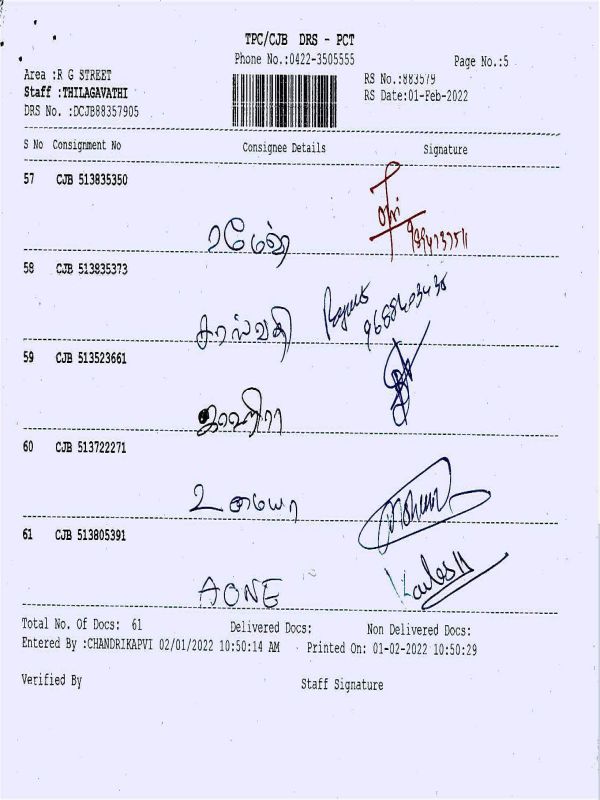 TPC/CJB DRS - PCT
Phone No.:0422-3505555
Page No.:5
Area :R G STREET
RS No.:883579
Staff :THILAGAVATHI
RS Date:01-Feb-2022
DRS No. :DCJB88357905
S No Consignment No Consignee Details Signature
57 CJB 513835350
ரமேஷ்
58 CJB 513835373
சரஸ்வதி
9688403438
59 CJB 513523661
ஜாஹிரா
60 CJB 513722271
உமையா
61 CJB 513805391
AONE
Total No. Of Docs: 61 Delivered Docs: Non Delivered Docs:
Entered By :CHANDRIKAPVI 02/01/2022 10:50:14 AM - Printed On: 01-02-2022 10:50:29
Verified By Staff Signature